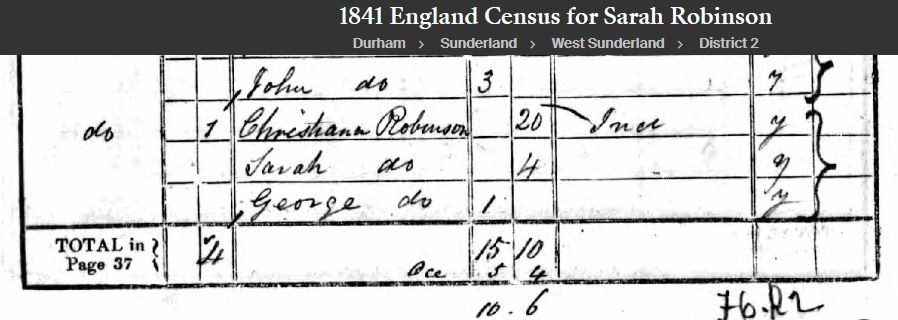 1841 England Census for Sarah Robinson
Durham > Sunderland > West Sunderland > District 2
John do 3 y
do 1 Christiana Robinson 20 Ind y
Sarah do 4 y
George do 1 y
TOTAL in
Page 37 } 4 15 10
Occ 5 4
10 . 6